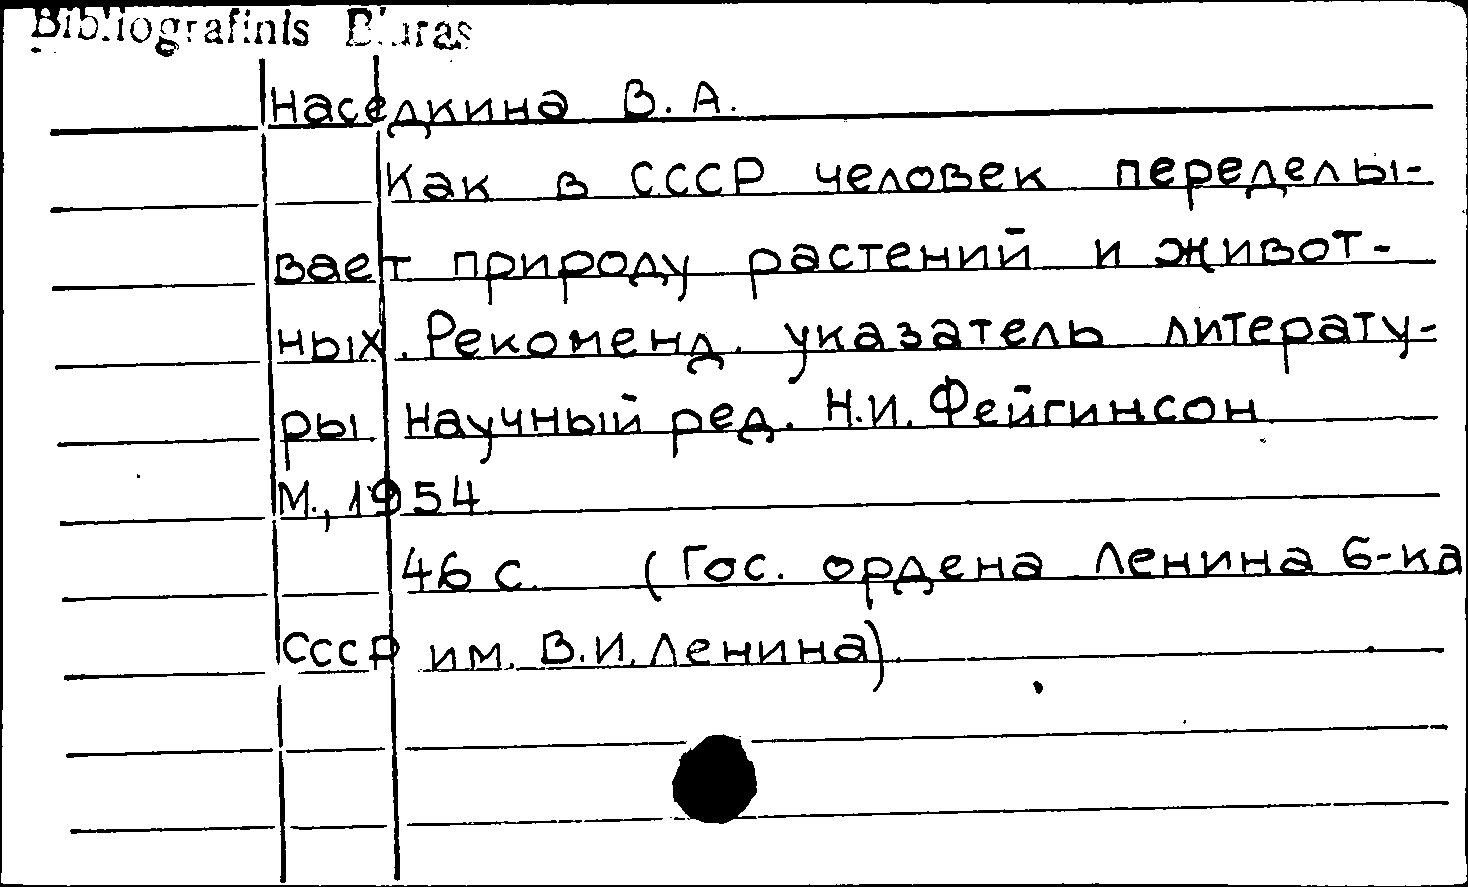 Bibliografinis Biuras
Наседкина В. А.
Как в СССР человек переделы-
вает природу растений и живот-
ных. Рекоменд. указатель литерату-
ры. Научный ред. Н.И. Фейгинсон
М., 1954
46 с. (Гос. ордена Ленина б-ка
СССР им. В.И. Ленина).